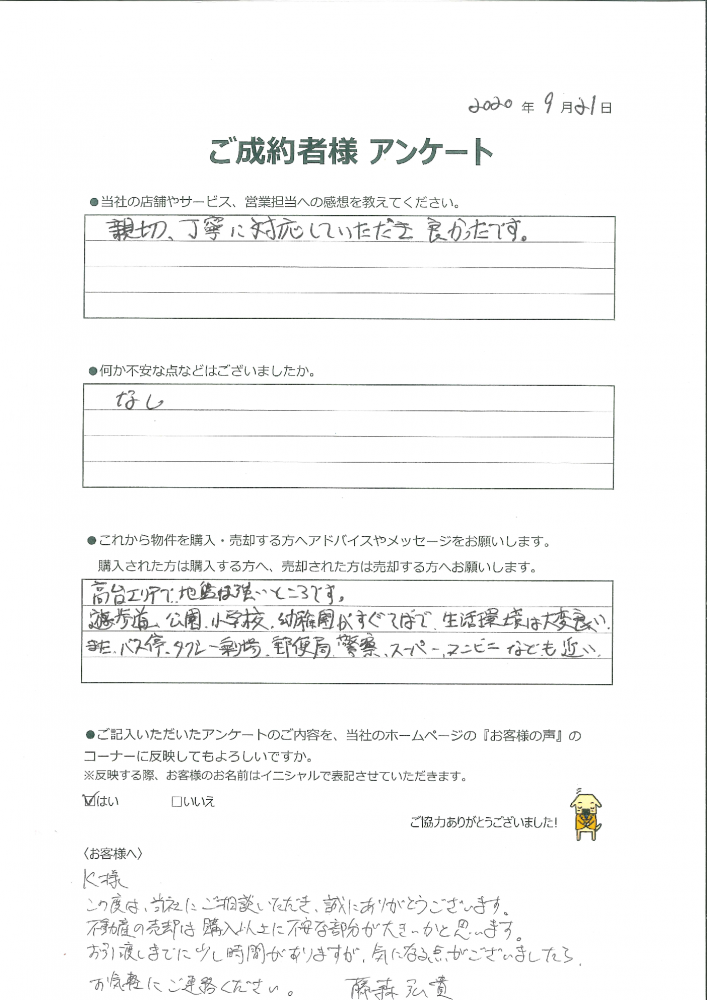 2020年9月21日
ご成約者様 アンケート
●当社の店舗やサービス、営業担当への感想を教えてください。
親切、丁寧に対応していただき良かったです。
●何か不安な点などはございましたか。
なし
●これから物件を購入・売却する方へアドバイスやメッセージをお願いします。
購入された方は購入する方へ、売却された方は売却する方へお願いします。
高台エリアで、地盤は強いところです。
遊歩道、公園、小学校、幼稚園がすぐそばで、生活環境は大変良い。
また、バス停、タクシー乗場、郵便局、警察、スーパー、コンビニなども近い。
●ご記入いただいたアンケートのご内容を、当社のホームページの『お客様の声』の
コーナーに反映してもよろしいですか。
※反映する際、お客様のお名前はイニシャルで表記させていただきます。
☑はい □いいえ
ご協力ありがとうございました!
〈お客様へ〉
K様
この度は、当社にご相談いただき、誠にありがとうございます。
不動産の売却は購入以上に不安な部分が大きいかと思います。
お引渡しまでに少し時間がありますが、気になる点がございましたら、
お気軽にご連絡ください。 藤森弘貴